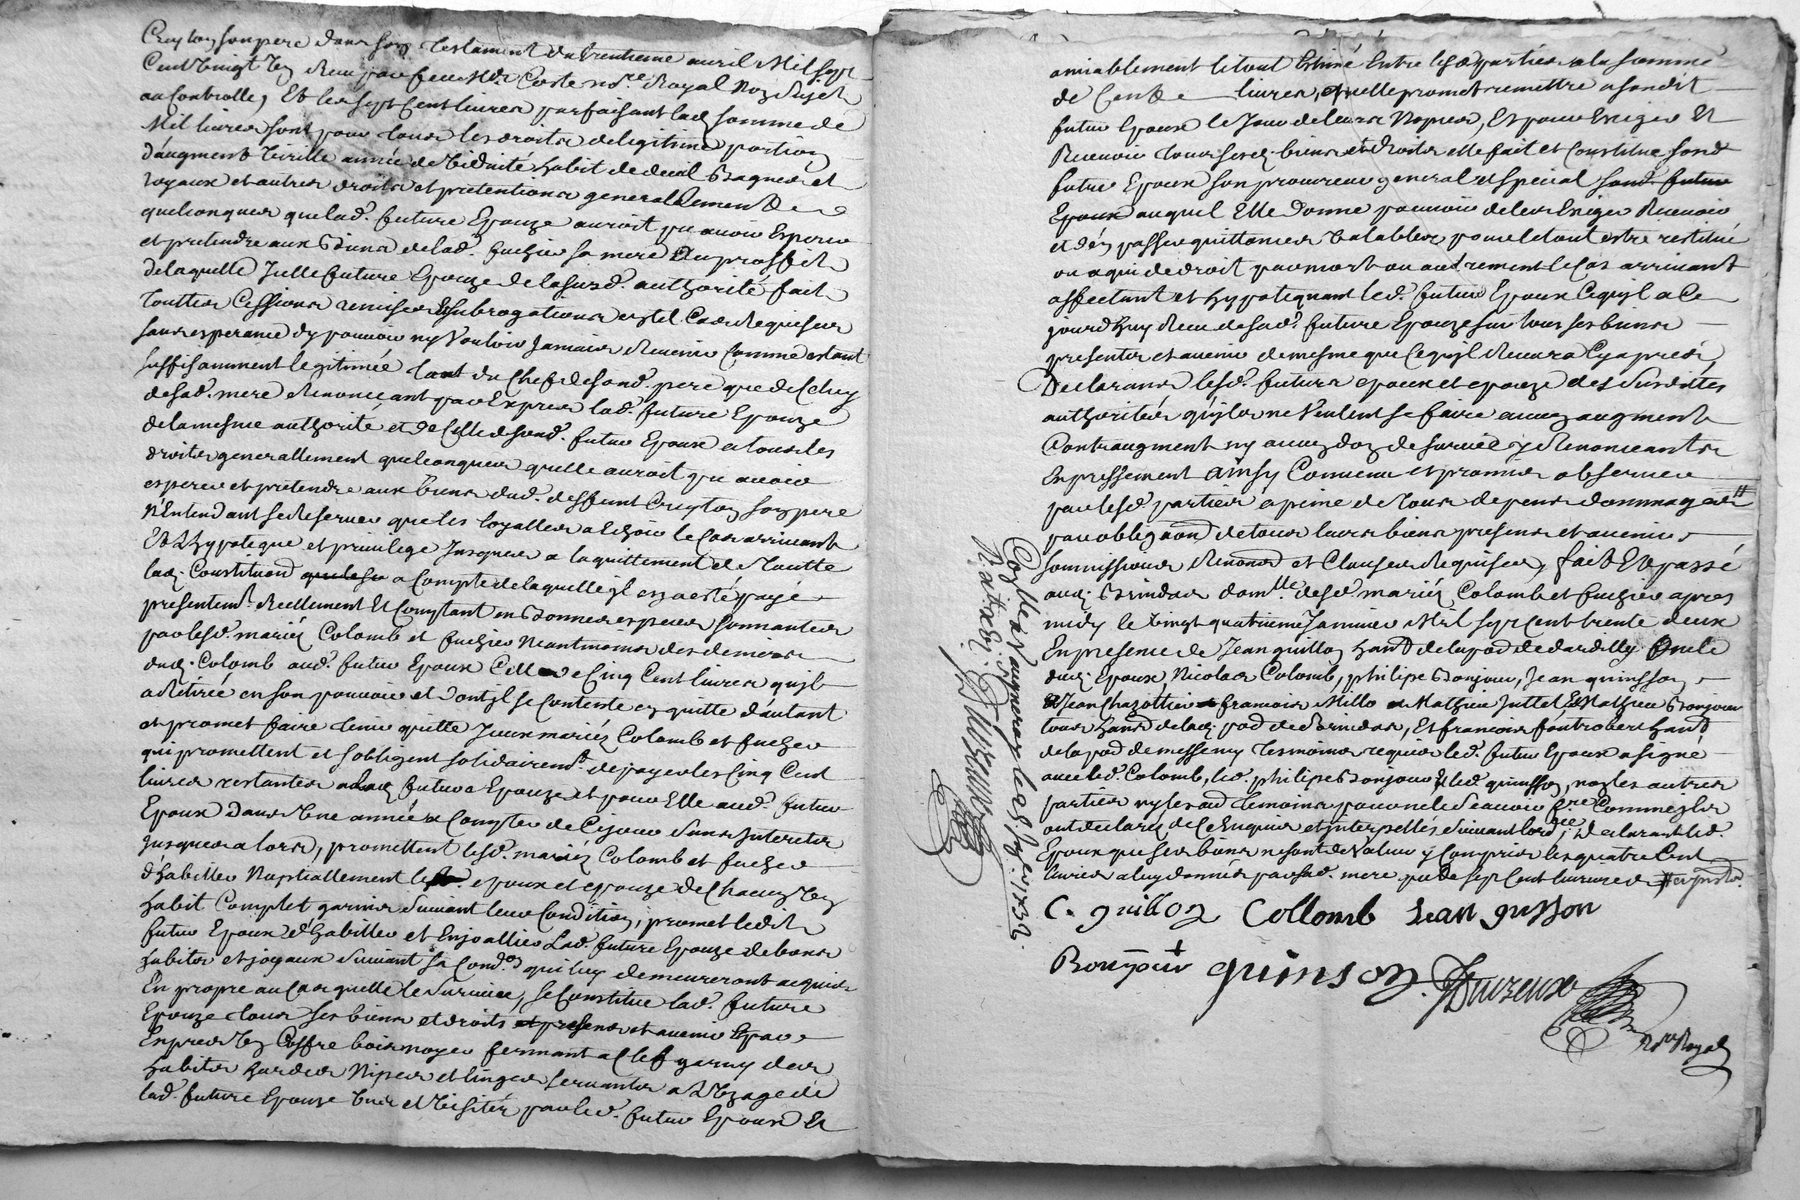 son pere dans son testament du trentieme avril Mil sept
Cent vingt un Receu par feu Me Coste no.re Royal
au Controlle, Et les sept Cent livres parfaisant lad. somme de
Mil livres sont pour tous les droits de legitime portion
d'augment virille année de viduité habit de deuil Bagues et
joyaux et autres droits et pretentions generallement
quelconques que lad. future Epouze auroit pu avoir Esperer
et pretendre aux Biens de lad. fuchier sa mere Au proffit
de laquelle Jcelle future Epouze de la susd. authorité fait
touttes Cessions remises & subrogations en tel Cas Requises
sans esperance d'y pouvoir ny vouloir Jamais Revenir Comme estant
suffisamment legitimée tant du Chef de sond. pere que de Celuy
de sad. mere Renonceant par Exprès lad. future Epouze
de la mesme authorité et de Celle de sond. futur Epoux a tous les
droits generallement quelconques quelle auroit pu avoir
esperer et pretendre aux biens dud. deffunt son pere
N'Entendant se Reserver que les loyalles a Echoir le Cas arrivant
Et L'hypoteque et privilege Jusques a l'aquittement de Toutte
lad. Constituon a Compte de laquelle il en a esté payé
presentem.t Reellement Et Comptant en Bonnes especes sonnantes
par lesd. mariés Colomb et fuchier Neantmoins des deniers
dud. Colomb aud. futur Epoux Celle de Cinq Cent livres quil
a Retirée en son pouvoir et dont jl se Contente en quitte d'autant
et promet faire tenir quitte Jceux mariés Colomb et fuchier
qui promettent et s'obligent solidairem.t de payer les Cinq Cent
livres restantes a lad. future Epouze et pour Elle aud. futur
Epoux dans Une année a Compter de Cejour sans Interets
Jusques alors, promettent lesd. mariés Colomb et fuchier
d'habiller Nuptiallement lesd. epoux et epouze de Chacun un
habit Complet garnis suivant leur Condition, promet ledit
futur Epoux d'habiller et Enjoallier Lad. future Epouze de bons
habits et joyaux suivant sa Cond.on qui luy demeureront acquis
En propre au Cas quelle le survive, se Constitue lad. future
Epouze tous ses biens et droits presens et avenir Et par
Exprès Un Coffre bois noyer fermant a Clef garny des
habits hardes Nipes et linges servants a L'Uzage de
lad. future Epouze Vus et Visités par led. futur Epoux Et
amiablement le tout Estimé Entre lesd. parties a la somme
de Cent livres, quelle promet remettre a sondit
futur Epoux le Jour de leurs Nopces, Et pour Exiger Et
Recevoir tous sesd. biens et droits elle fait et Constitue sond.
futur Epoux son procureur general et special sond. futur
Epoux auquel Elle donne pouvoir de les Exiger Recevoir
et d'en passer quittances Valables pour le tout estre restitué
ou a qui de droit par mort ou autrement le Cas arrivant
affectant et hypotequant led. futur Epoux Ce quil a Ce
jourd'huy Receu de sad. future Epouze sur tous ses biens
presents et avenir de mesme que Ce quil Recevra Cy apres,
Declarans lesd. futurs epoux et epouze des susdittes
authorités qu'jls ne Veulent se faire aucun augment
Contraugment ny aucun don de survie y Renonceants
Expressement ainsy Convenu et promis observer
par lesd. parties a peine de tous depens dommages #
par obligaon de tous leurs biens presens et avenir
soumissions Renonons et Clauses Requises, fait Et passé
aud. Brindas dom.lle desd. mariés Colomb et fuchier apres
midy le Vingt quatrieme Janvier Mil sept Cent trente deux
En presence de Jean guillon habt de la pard de dardilly oncle
dud. Epoux, Nicolas Colomb, philipe Bonjour, Jean quinson,
Jean Chazottier francois Millo Mathieu Juttet Et Mathieu Bonjour
tous habts de lad. pard de Brindas, Et francois habt
de la pard de messemy temoins requis led. futur Epoux a signé
avec led. Colomb, led. philipe Bonjour & led. quinson, non les autres
parties ny lesd. temoins pour ne le scavoir fre Comme jls
ont declaré de Ce Enquis et interpellés suivant l'ord.nce, declarant led.
Epoux que ses biens ne sont de Valeur y Compris les quatre Cent
livres a luy donnés par sad. mere, que de sept Cent livres # interests
C. guillon Collomb Jean qusson
Bonyour quinson. Duzeux
No.re Royal
Con.lé a Vaugneray le 25 Janv.er 1732
R. six l.
Duzeux